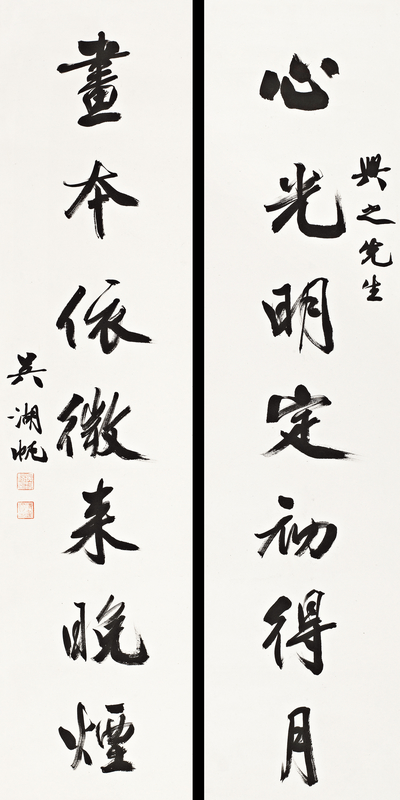 心光明定初得月
興之先生
畫本依微来晚煙
吳湖帆